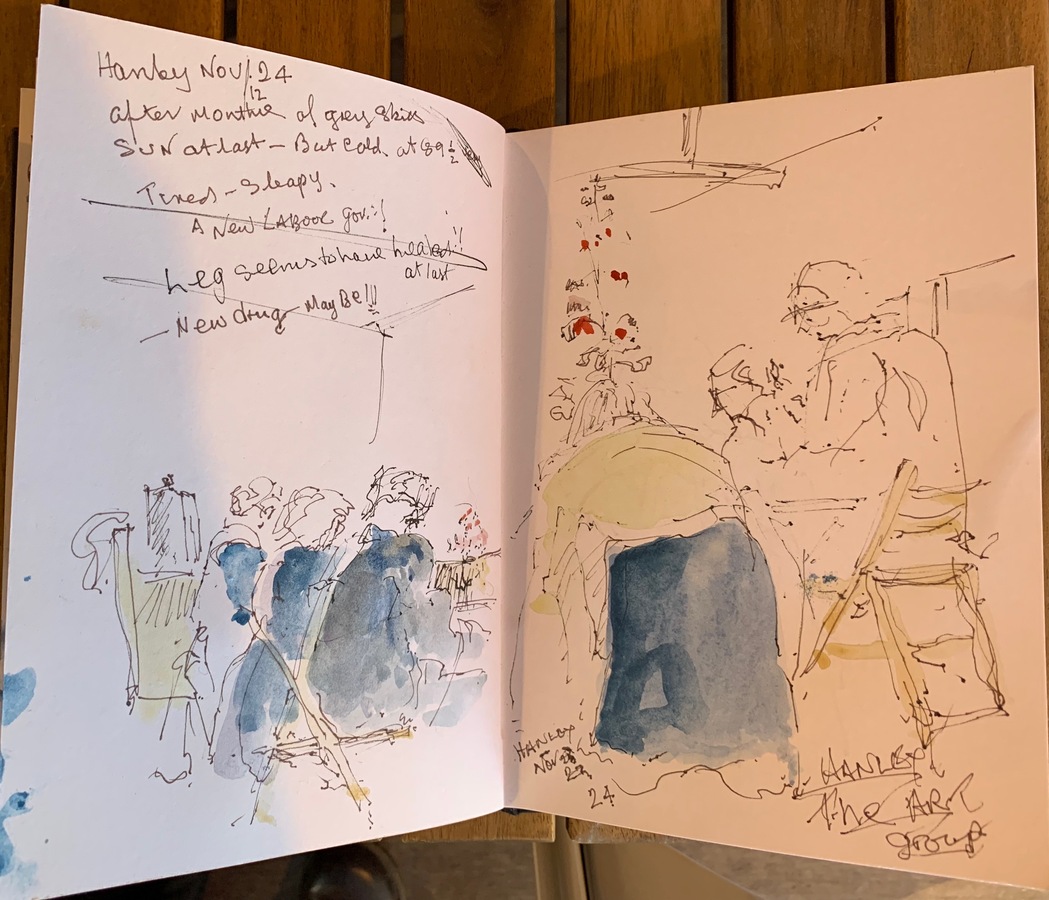 Hanley Nov 24
12
after Months of grey skies
SUN at last – But cold. at 89 ½
Tired – Sleapy.
A New LABOOR gov.!!
Leg seems to have healed!!
at last
New drug MayBe!!!
HANLEY
Nov
24
HANLEY
The ART
group